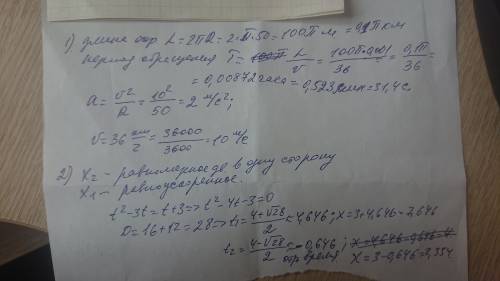 1) длина окр L = 2πR = 2·π·50 = 100π м = 0,1π км
период обращения T = L/v = = 0,1π/36 =
= 0,00872 часа = 0,523 мин = 31,4 с
a = v²/R = 10²/50 = 2 м/с²;
v = 36 км/ч = 36000/3600 = 10 м/с
2) X₂ – равномерное в одну сторону
X₁ – равноускоренное.
t²-3t = t+3 => t²-4t-3=0
D = 16+12 = 28 => t₁ = (4+√28)/2 = 4,646; X = 3+4,646 = 7,646
t₂ = (4-√28)/2 = -0,646;
отр время X = 3-0,646 = 2,354